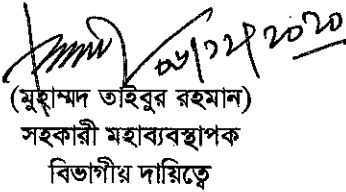 ০৬/১২/২০২০
(মুহাম্মদ তাইবুর রহমান)
সহকারী মহাব্যবস্থাপক
বিভাগীয় দায়িত্বে